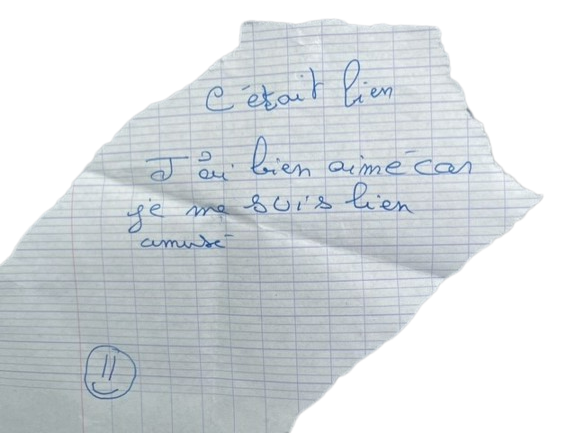 C'était bien
J'ai bien aimé car
je me suis bien
amusé